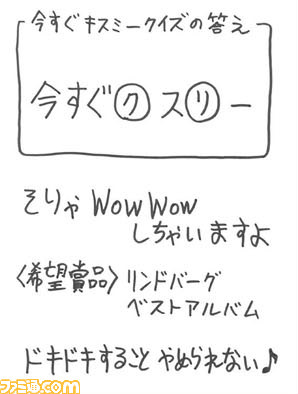 今すぐキスミークイズの答え
今すぐクスリー
そりゃWowWow
しちゃいますよ
〈希望賞品〉リンドバーグ
ベストアルバム
ドキドキすること やめられない♪
ファミ通.com